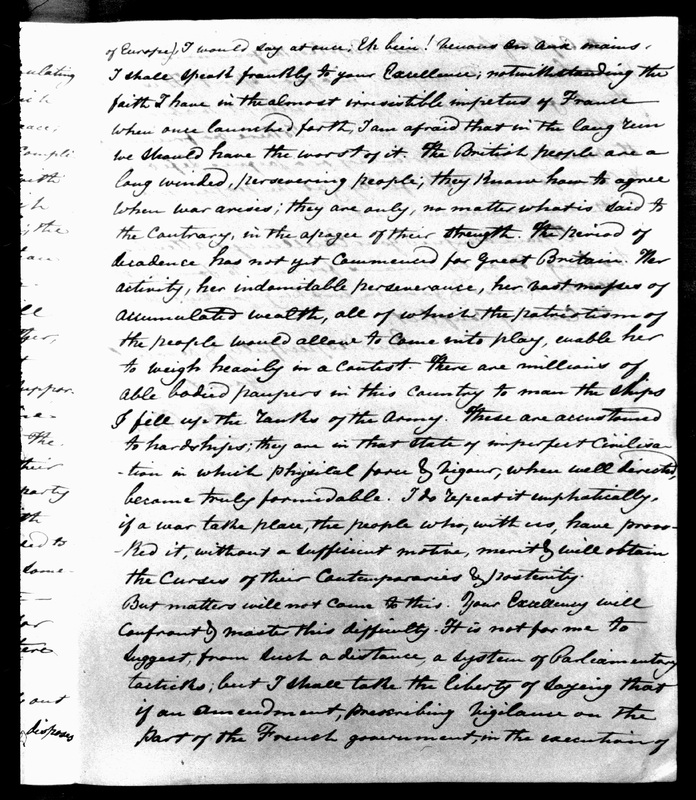 of Europe), I would say at once; Eh bien! venons en aux mains.
I shall speak frankly to your Excellence; notwithstanding the
faith I have in the almost irresistible impetus of France
when once launched forth, I am afraid that in the long run
we should have the worst of it. The British people are a
long winded, persevering people; they know how to agree
when war arises; they are only, no matter what is said to
the contrary, in the apogee of their strength. The period of
decadence has not yet commenced for Great Britain. Her
activity, her indomitable perseverance, her vast masses of
accumulated wealth, all of which the patriotism of
the people would allow to come into play, enable her
to weigh heavily in a contest. There are millions of
able bodied paupers in this country to man the ships
& fill up the ranks of the Army. These are accustomed
to hardships; they are in that state of imperfect Civilisa-
-tion in which physical force & vigour, when well directed,
become truly formidable. I do repeat it emphatically,
if a war take place, the people who, with us, have provo-
-ked it, without a sufficient motive, merit & will obtain
the curses of their Contemporaries & posterity.
But matters will not come to this. Your Excellency will
confront & master this difficulty. It is not for me to
suggest, from such a distance, a system of Parliamentary
tacticks; but I shall take the liberty of saying that
if an amendment, prescribing vigilance on the
part of the French government, in the execution of